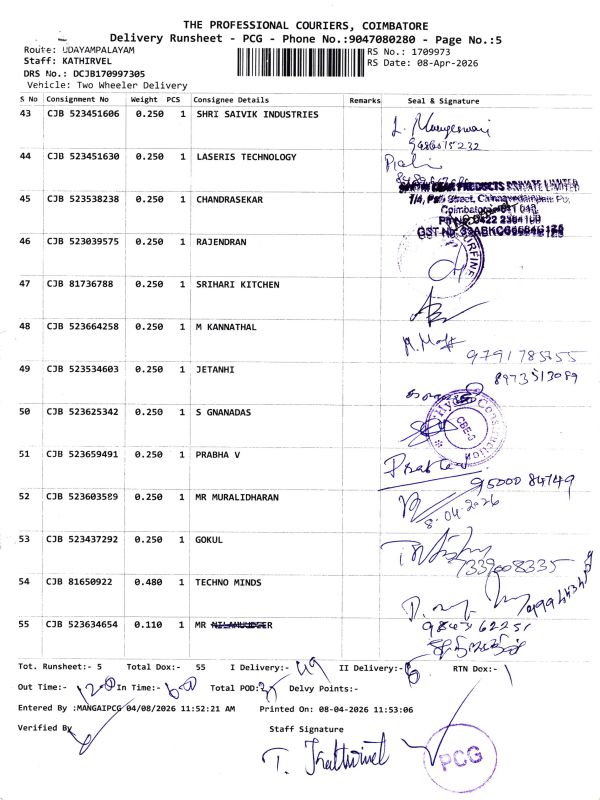 THE PROFESSIONAL COURIERS, COIMBATORE
Delivery Runsheet - PCG - Phone No.:9047080280 - Page No.:5
Route: UDAYAMPALAYAM
Staff: KATHIRVEL
DRS No.: DCJB170997305
Vehicle: Two Wheeler Delivery
RS No.: 1709973
RS Date: 08-Apr-2026
S No Consignment No Weight PCS Consignee Details Remarks Seal & Signature
43 CJB 523451606 0.250 1 SHRI SAIVIK INDUSTRIES
9486075232
44 CJB 523451630 0.250 1 LASERIS TECHNOLOGY
45 CJB 523538238 0.250 1 CHANDRASEKAR
46 CJB 523039575 0.250 1 RAJENDRAN
47 CJB 81736788 0.250 1 SRIHARI KITCHEN
48 CJB 523664258 0.250 1 M KANNATHAL
49 CJB 523534603 0.250 1 JETANHI
8973513089
50 CJB 523625342 0.250 1 S GNANADAS
CBE-
51 CJB 523659491 0.250 1 PRABHA V
95000 84749
52 CJB 523603589 0.250 1 MR MURALIDHARAN
8-04-2026
53 CJB 523437292 0.250 1 GOKUL
7339008335
54 CJB 81650922 0.480 1 TECHNO MINDS
55 CJB 523634654 0.110 1 MR
Tot. Runsheet:- 5 Total Dox:- 55 I Delivery:- 49 II Delivery:- 6 RTN Dox:-
Out Time:- 1200 In Time:- 600 Total POD: Delvy Points:-
Entered By :MANGAIPCG 04/08/2026 11:52:21 AM Printed On: 08-04-2026 11:53:06
Verified By
Staff Signature
T. Kathirvel
PCG